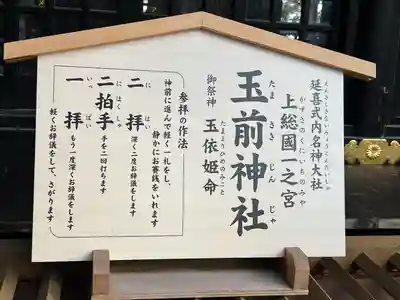 延喜式内名神大社
上総國一之宮
かずさのくにいちのみや
玉前神社
たまさきじんじゃ
御祭神 玉依姫命
たまよりひめのみこと
参拝の作法
神前に進んで軽く一礼をし、
静かにお賽銭をいれます
二拝 深く二度お辞儀をします
にはい
二拍手 手を二回打ちます
にはくしゅ
一拝 もう一度深くお辞儀をします
いっぱい
軽くお辞儀をして、さがります